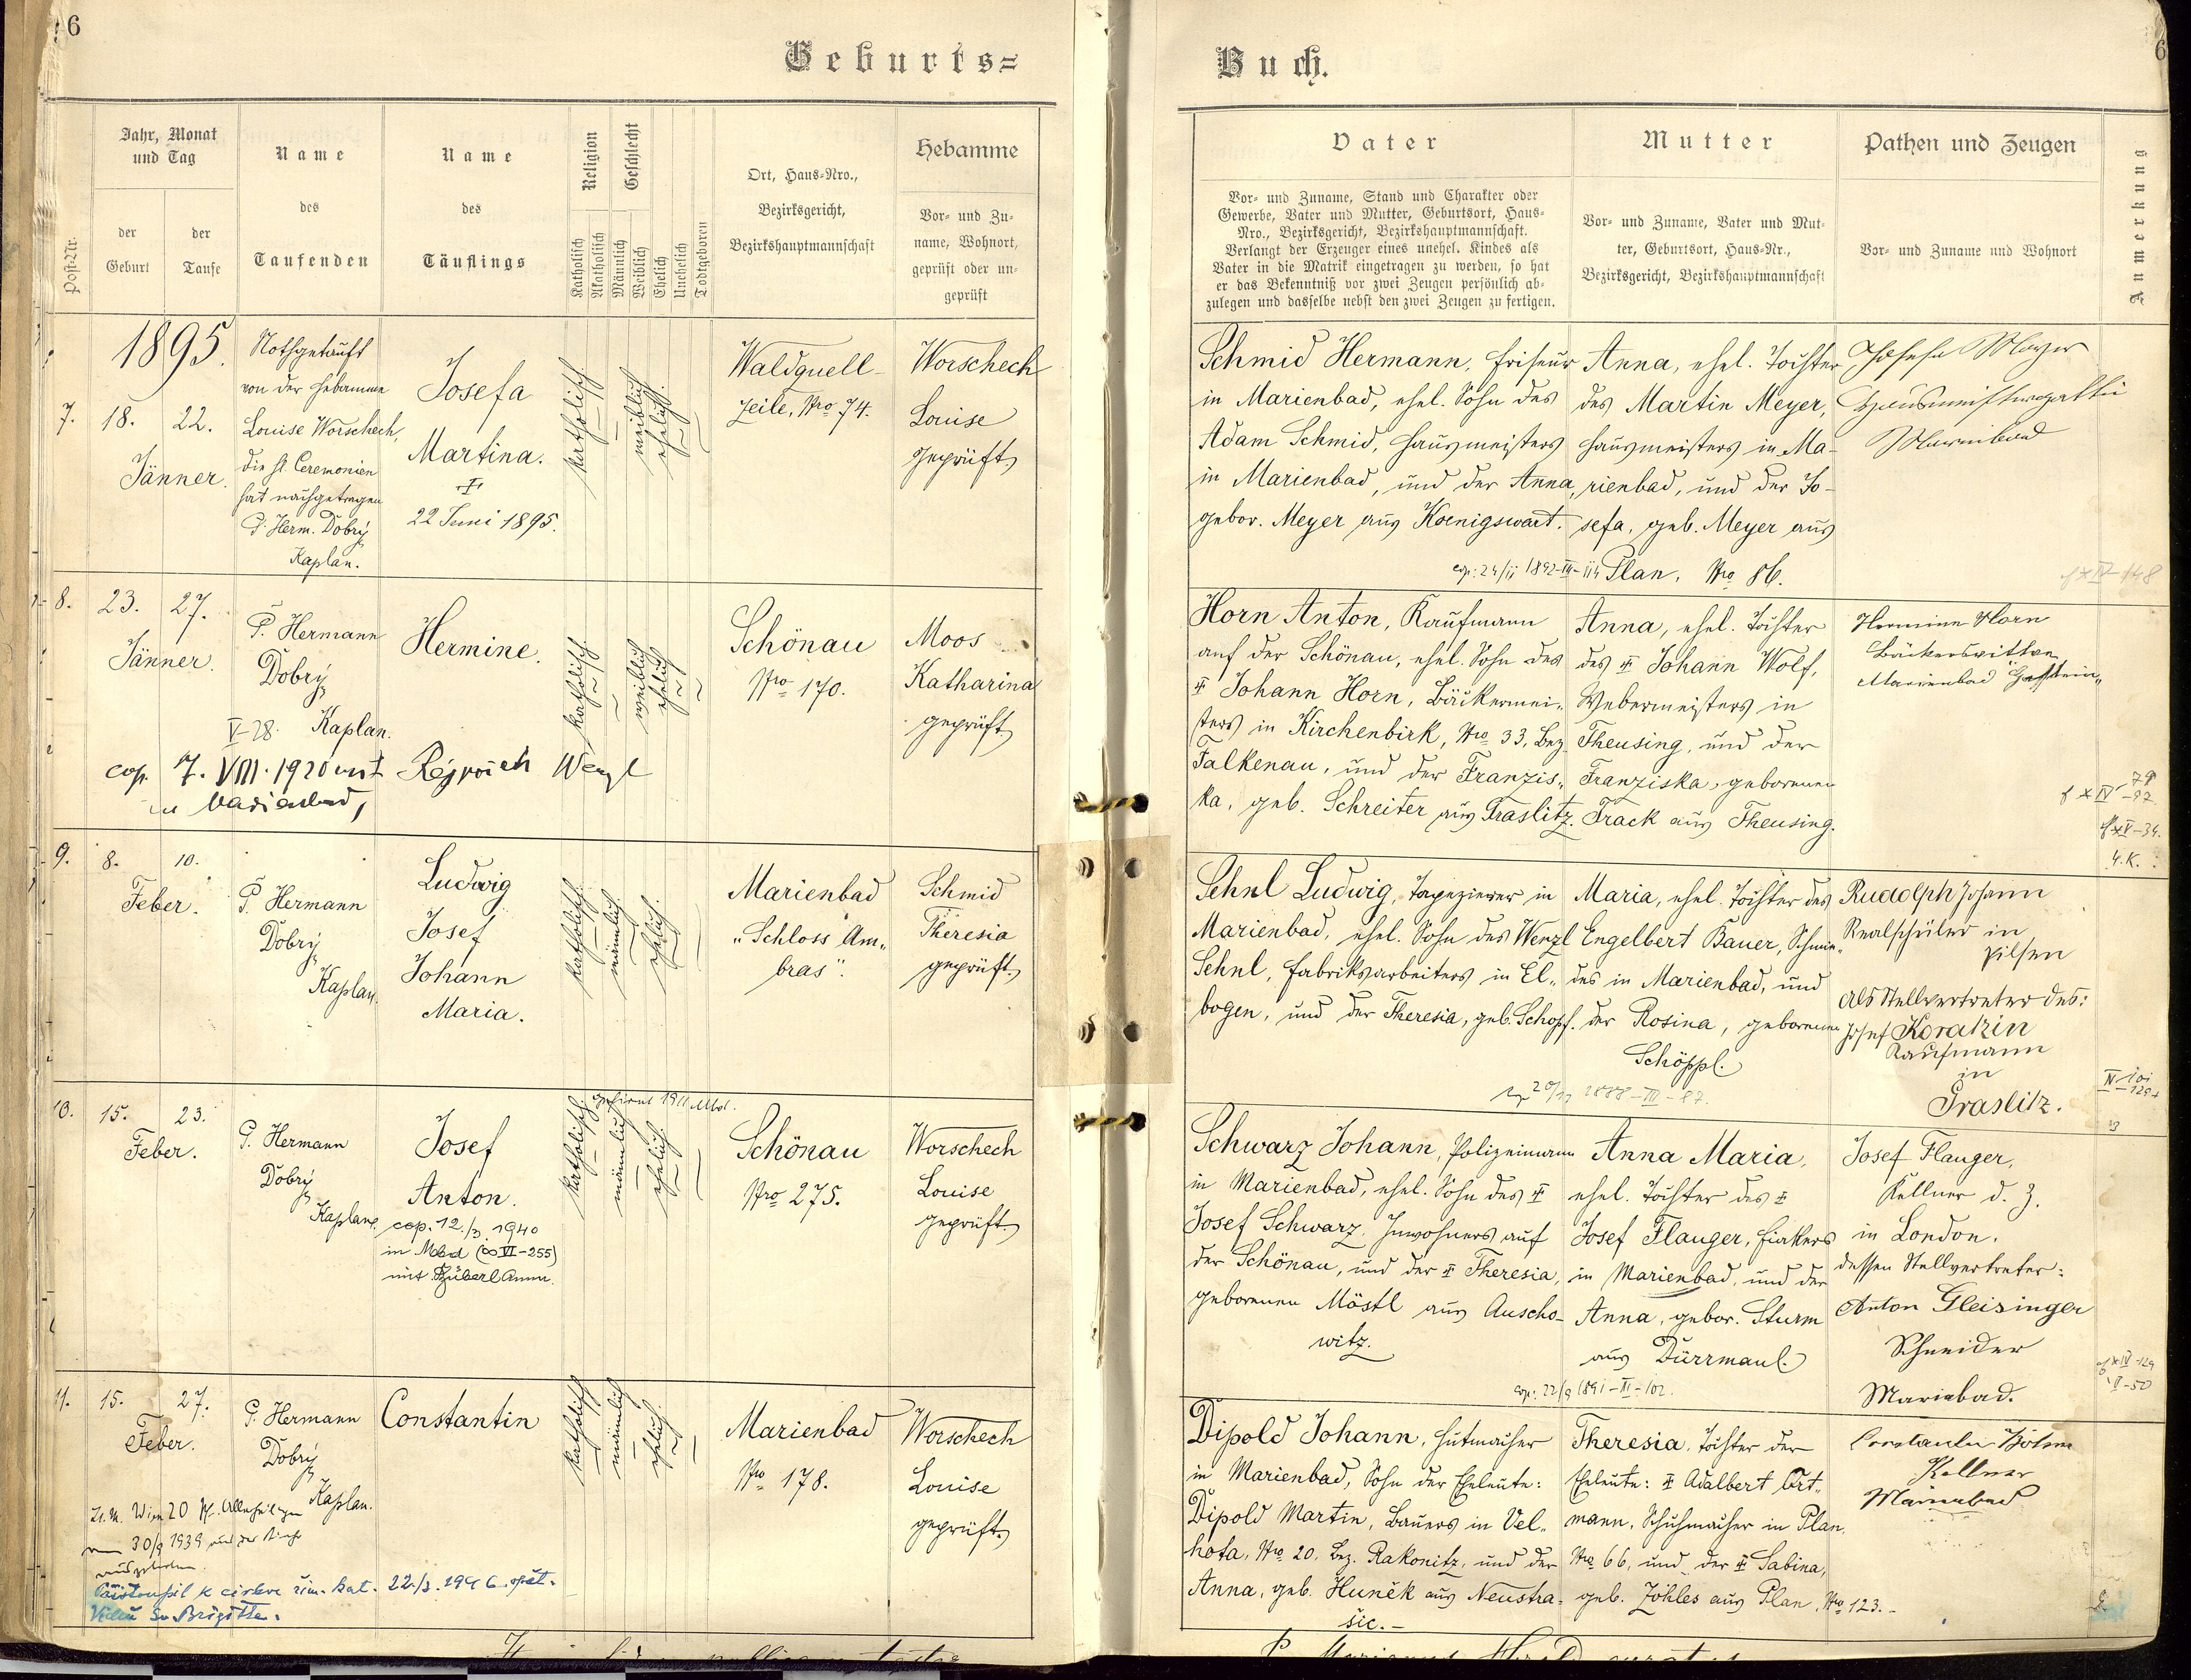 6
Geburts=
Post-Nr.
Jahr, Monat
und Tag
der
Geburt
der
Taufe
Name
des
Taufenden
Name
des
Täuflings
Religion
Katholisch
Akatholisch
Geschlecht
Männlich
Weiblich
Ehelich
Unehelich
Todtgeboren
Ort, Haus-Nro.,
Bezirksgericht,
Bezirkshauptmannschaft
Hebamme
Vor- und Zu-
name, Wohnort,
geprüft oder un-
geprüft
1895.
7. 18. 22.
Jänner.
Nothgetauft
von der Hebamme
Louise Worschech,
die hl. Ceremonien
hat nachgetragen
P. Herm. Dobrý
Kaplan.
Josefa
Martina.
†
22 Juni 1895.
katholisch
weiblich
ehelich
Waldquell-
zeile, Nro 74.
Worschech
Louise
geprüft
8. 23. 27.
Jänner.
P. Hermann
Dobrý
V-28. Kaplan.
Hermine.
katholisch
weiblich
ehelich
Schönau
Nro 170.
Moos
Katharina
geprüft
cop. 7. VIII. 1920 mit Wenzl
in Marienbad,
9. 8. 10.
Feber.
P. Hermann
Dobrý
Kaplan.
Ludwig
Josef
Johann
Maria.
katholisch
männlich
ehelich
Marienbad
„Schloss Am„
bras".
Schmid
Theresia
geprüft
10. 15. 23.
Feber.
P. Hermann
Dobrý
Kaplan.
gefirmt 1911 Mbd.
Josef
Anton.
cop. 12./3. 1940
in Mbd (∞ VI-255)
mit
katholisch
männlich
ehelich
Schönau
Nro 275.
Worschech
Louise
geprüft
11. 15. 27.
Feber.
P. Hermann
Dobrý
Kaplan.
Constantin
katholisch
männlich
ehelich
Marienbad
Nro 178.
Worschech
Louise
geprüft
Wien 20
30/9 1939
k církvi řím. kat. 22./3. 1946. opět.
Sv. Brigitta.
6
Buch.
Vater
Vor- und Zuname, Stand und Charakter oder
Gewerbe, Vater und Mutter, Geburtsort, Haus-
Nro., Bezirksgericht, Bezirkshauptmannschaft.
Verlangt der Erzeuger eines unehel. Kindes als
Vater in die Matrik eingetragen zu werden, so hat
er das Bekenntniß vor zwei Zeugen persönlich ab-
zulegen und dasselbe nebst den zwei Zeugen zu fertigen.
Mutter
Vor- und Zuname, Vater und Mut-
ter, Geburtsort, Haus-Nr.,
Bezirksgericht, Bezirkshauptmannschaft
Pathen und Zeugen
Vor- und Zuname und Wohnort
Anmerkung
Schmid Hermann, Friseur
in Marienbad, ehel. Sohn des
Adam Schmid, Hausmeisters
in Marienbad, und der Anna,
gebor. Meyer aus Koenigswart.
Anna, ehel. Tochter
des Martin Meyer,
Hausmeisters in Ma-
rienbad, und der Jo-
sefa, geb. Meyer aus
Plan, Nro 86.
Josefa Mayer
Hausmeistersgattin
Marienbad
Horn Anton, Kaufmann
auf der Schönau, ehel. Sohn des
† Johann Horn, Bäckermei-
sters in Kirchenbirk, Nro 33, Bez.
Falkenau, und der Franzis„
ka, geb. Schreiter aus Graslitz.
Anna, ehel. Tochter
des † Johann Wolf,
Webermeisters in
Theusing, und der
Franziska, geborenen
Track aus Theusing.
Hermine Horn
Bäckerswittwe
Marienbad
Sehnl Ludwig, Tapezierer in
Marienbad, ehel. Sohn des Wenzl
Sehnl, Fabriksarbeiters in El„
bogen, und der Theresia, geb. Schopf.
Maria, ehel. Tochter des
Engelbert Bauer, Schmie„
des in Marienbad, und
der Rosina, geborenen
Schöppl.
Rudolph Johann
Realschüler in
Pilsen
als Stellvertreter des:
Josef Koratzin
Kaufmann
in
Graslitz.
Schwarz Johann, Polizeimann
in Marienbad, ehel. Sohn des †
Josef Schwarz, Inwohners auf
der Schönau, und der † Theresia,
geborenen Möstl aus Auscho-
witz.
Anna Maria,
ehel. Tochter des †
Josef Flauger, Fiakers
in Marienbad, und der
Anna, gebor. Sturm
aus Dürrmaul.
cop: 22/9 1891-III-102.
Josef Flauger,
Kellner d. Z.
in London.
dessen Stellvertreter:
Anton Gleisinger
Schneider
Marienbad.
Dipold Johann, Hutmacher
in Marienbad, Sohn der Eheleute:
Dipold Martin, Bauers in Vel„
hota, Nro 20, Bez. Rakonitz, und der
Anna, geb. Huněk aus Neustra-
šic.-
Theresia, Tochter der
Eheleute: † Adalbert Ort„
mann, Schuhmacher in Plan,
Nro 66, und der † Sabina,
geb. Zöhles aus Plan, Nro 123.-
Constantin Böhm
Kellner
Marienbad